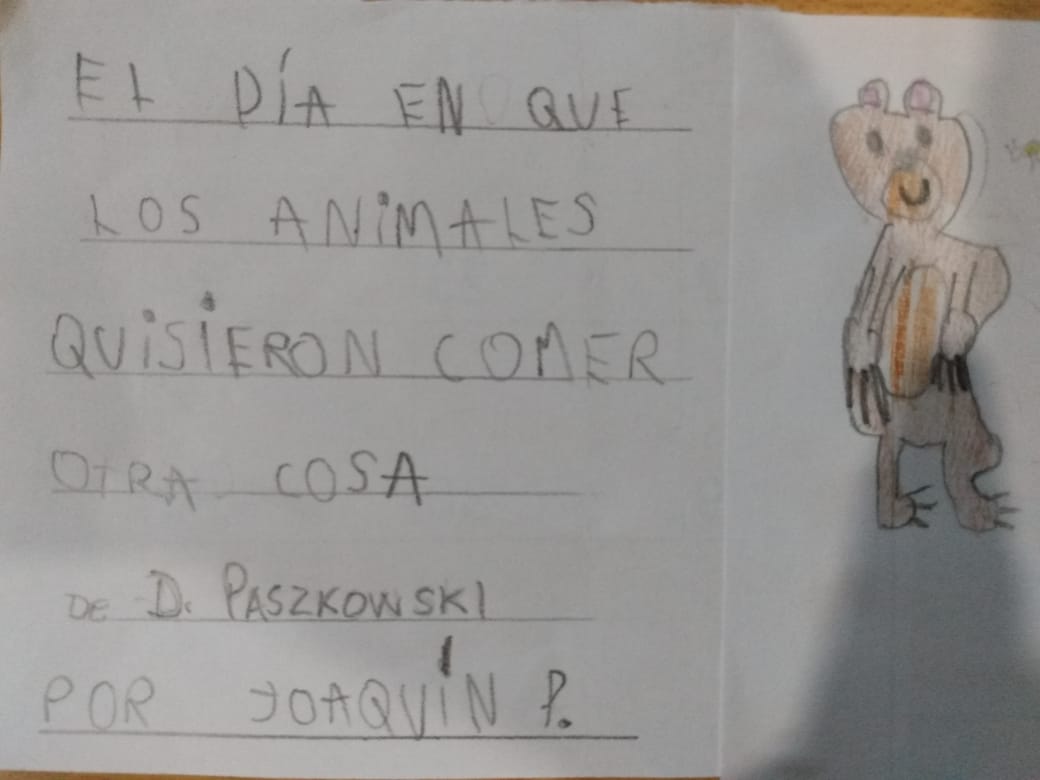 EL DÍA EN QUE
LOS ANiMALES
QUiSIERON COMER
OTRA COSA
DE D. PASZKOWSKI
POR JOAQUÍN P.